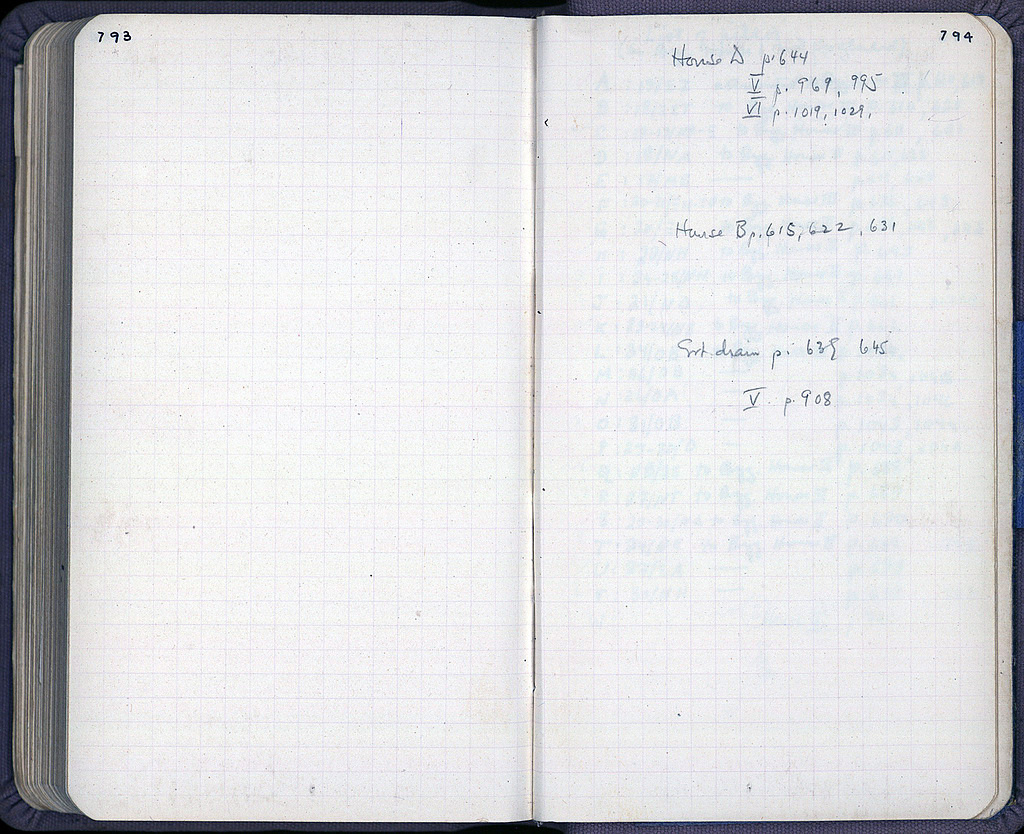 793
794
House D p. 644
V p. 969, 995
VI p. 1019, 1029,
House B p. 615, 622, 631
drain p. 645
V p. 908